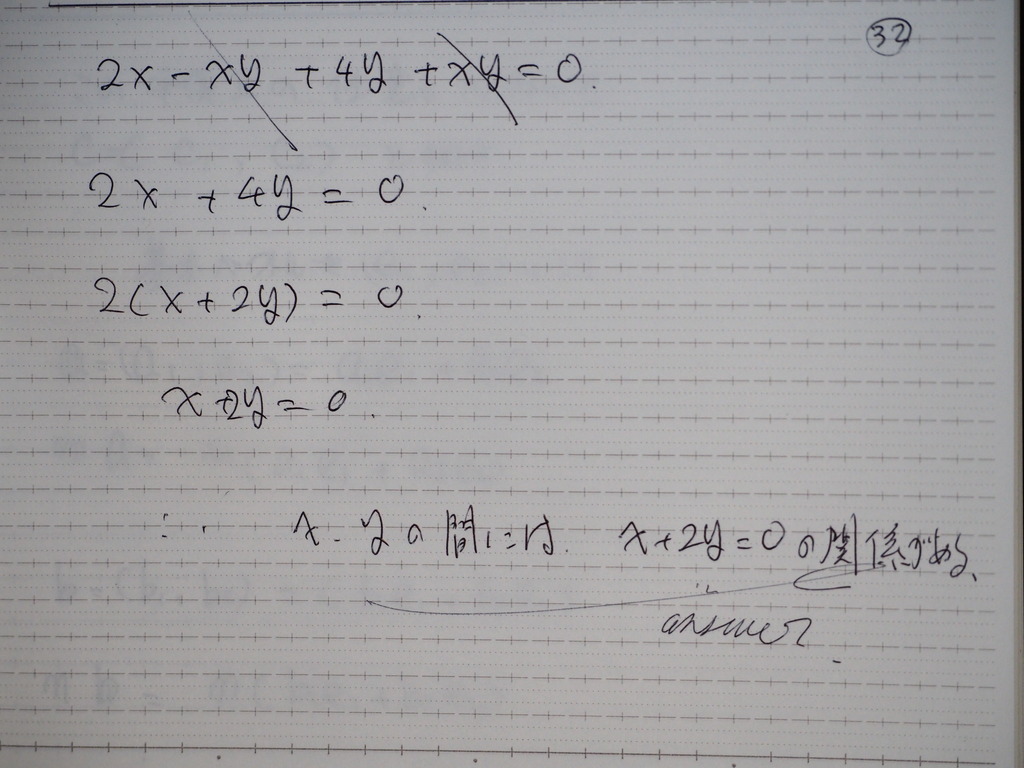 32
2x - xy + 4y + xy = 0.
2x + 4y = 0.
2(x + 2y) = 0.
x + 2y = 0.
∴ x・yの間には、x + 2y = 0の関係がある、
answer